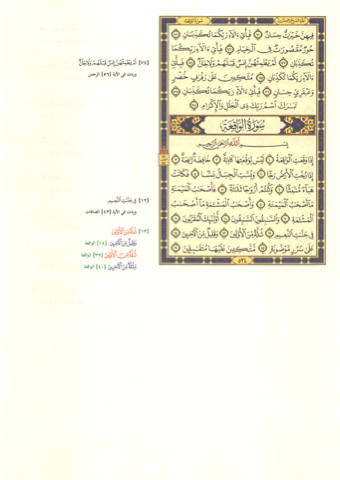 فِيهِنَّ خَيْرَٰتٌ حِسَانٌ ۝٧٠ فَبِأَيِّ ءَالَآءِ رَبِّكُمَا تُكَذِّبَانِ ۝٧١
حُورٌ مَّقْصُورَٰتٌ فِي ٱلْخِيَامِ ۝٧٢ فَبِأَيِّ ءَالَآءِ رَبِّكُمَا
تُكَذِّبَانِ ۝٧٣ لَمْ يَطْمِثْهُنَّ إِنسٌ قَبْلَهُمْ وَلَا جَآنٌّ ۝٧٤ فَبِأَيِّ
ءَالَآءِ رَبِّكُمَا تُكَذِّبَانِ ۝٧٥ مُتَّكِـِٔينَ عَلَىٰ رَفْرَفٍ خُضْرٍ
وَعَبْقَرِيٍّ حِسَانٍ ۝٧٦ فَبِأَيِّ ءَالَآءِ رَبِّكُمَا تُكَذِّبَانِ ۝٧٧
تَبَٰرَكَ ٱسْمُ رَبِّكَ ذِي ٱلْجَلَٰلِ وَٱلْإِكْرَامِ ۝٧٨
سُورَةُ الوَاقِعَةِ
بِسْمِ ٱللَّهِ ٱلرَّحْمَٰنِ ٱلرَّحِيمِ
إِذَا وَقَعَتِ ٱلْوَاقِعَةُ ۝١ لَيْسَ لِوَقْعَتِهَا كَاذِبَةٌ ۝٢ خَافِضَةٌ رَّافِعَةٌ ۝٣
إِذَا رُجَّتِ ٱلْأَرْضُ رَجًّا ۝٤ وَبُسَّتِ ٱلْجِبَالُ بَسًّا ۝٥ فَكَانَتْ
هَبَآءً مُّنۢبَثًّا ۝٦ وَكُنتُمْ أَزْوَٰجًا ثَلَٰثَةً ۝٧ فَأَصْحَٰبُ ٱلْمَيْمَنَةِ
مَآ أَصْحَٰبُ ٱلْمَيْمَنَةِ ۝٨ وَأَصْحَٰبُ ٱلْمَشْـَٔمَةِ مَآ أَصْحَٰبُ
ٱلْمَشْـَٔمَةِ ۝٩ وَٱلسَّٰبِقُونَ ٱلسَّٰبِقُونَ ۝١٠ أُو۟لَٰٓئِكَ ٱلْمُقَرَّبُونَ ۝١١
فِي جَنَّٰتِ ٱلنَّعِيمِ ۝١٢ ثُلَّةٌ مِّنَ ٱلْأَوَّلِينَ ۝١٣ وَقَلِيلٌ مِّنَ ٱلْءَاخِرِينَ ۝١٤
عَلَىٰ سُرُرٍ مَّوْضُونَةٍ ۝١٥ مُّتَّكِـِٔينَ عَلَيْهَا مُتَقَٰبِلِينَ ۝١٦
٥٣٤
[٧٤] لَمْ يَطْمِثْهُنَّ إِنسٌ قَبْلَهُمْ وَلَا جَآنٌّ
وردت في الآية [٥٦] الرحمن
[١٢] فِي جَنَّٰتِ ٱلنَّعِيمِ
وردت في الآية [٤٣] الصافات
[١٣] ثُلَّةٌ مِّنَ ٱلْأَوَّلِينَ
وَقَلِيلٌ مِّنَ ٱلْءَاخِرِينَ [١٤] الواقعة
ثُلَّةٌ مِّنَ ٱلْأَوَّلِينَ [٣٩] الواقعة
وَثُلَّةٌ مِّنَ ٱلْءَاخِرِينَ [٤٠] الواقعة